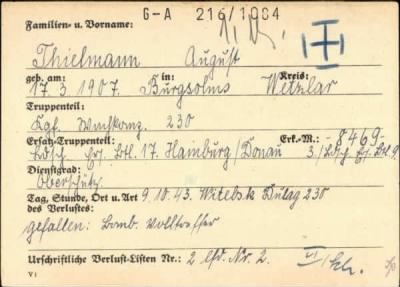 G-A 216/1084
Familien- u. Vorname:
Thielmann August
geb. am: in: Kreis:
17.3.1907. Burgsolms Wetzlar
Truppenteil:
Kgf. 230
Ersatz-Truppenteil: Erk.-M.: -8469-
Ldsch. Ers. Btl. 17. Hainburg/Donau 3./Ldsch Ers. Btl. 9
Dienstgrad:
Oberschütz.
Tag, Stunde, Ort u. Art 9.10.43. Witebsk Dulag 230
des Verlustes:
gefallen: Bomb. Volltreffer
Urschriftliche Verlust-Listen Nr.: 2 lfd. Nr. 2.
V I